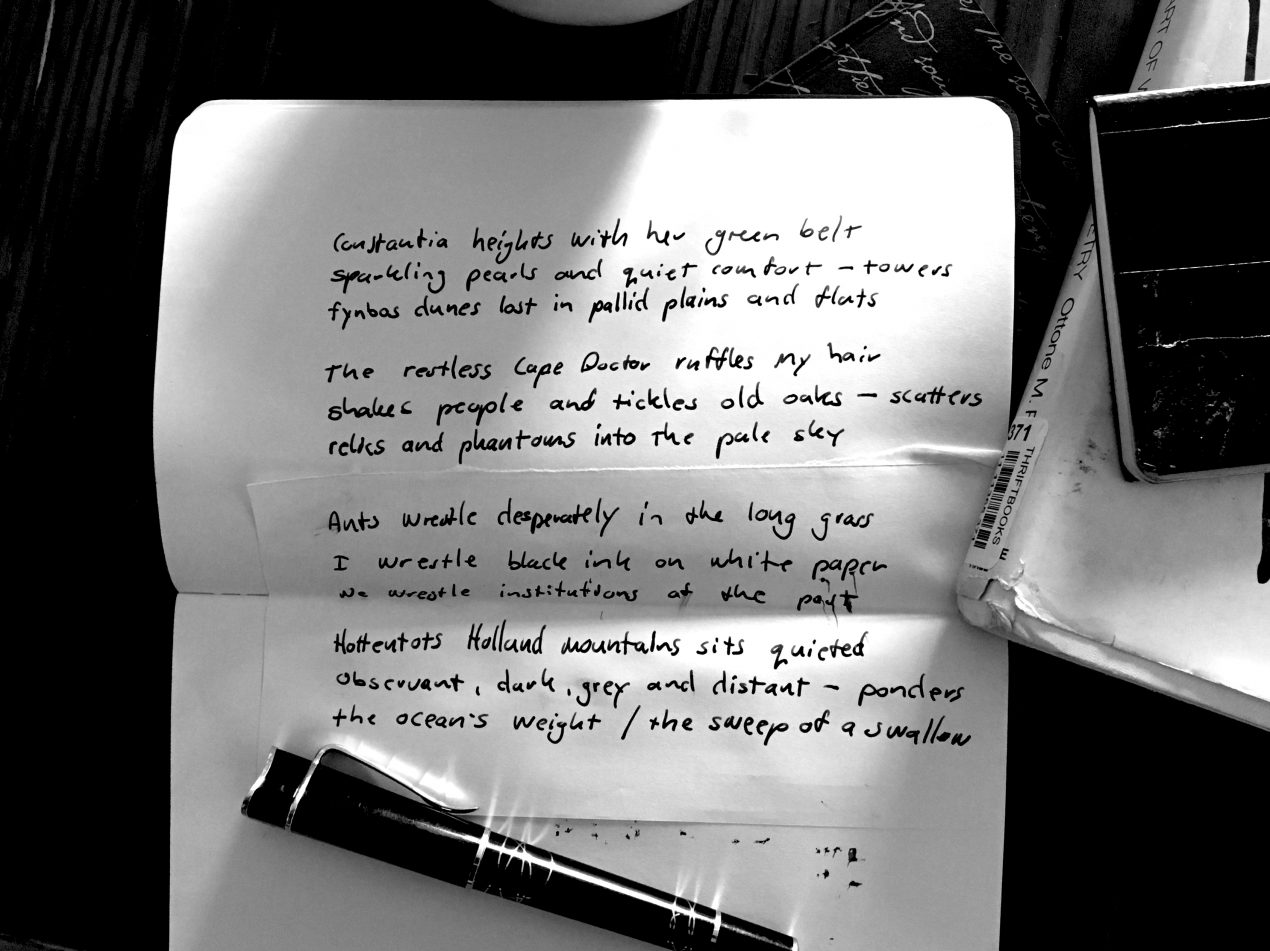 Constantia heights with her green belt
sparkling pearls and quiet comfort – towers
fynbos dunes lost in pallid plains and flats
The restless Cape Doctor ruffles my hair
shakes people and tickles old oaks – scatters
relics and phantoms into the pale sky
Ants wrestle desperately in the long grass
I wrestle black ink on white paper
We wrestle institutions of the past
Hottentots Holland mountains sits quieted
observant, dark, grey and distant – ponders
the ocean's weight / the sweep of a swallow
ART OF
ETRY Ottone M.
371
THRIFTBOOKS
E
the soul
And soul